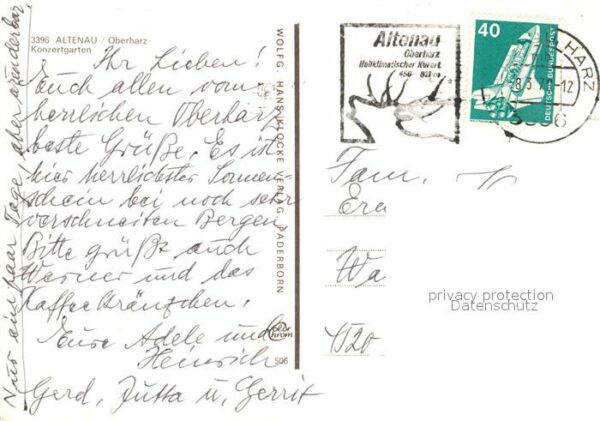 3396 ALTENAU / Oberharz
Konzertgarten
Ihr Lieben!
Euch allen vom
herrlichen Oberharz
beste Grüße. Es ist
hier herrlichster Sonnen-
schein bei noch sehr
verschneiten Bergen.
Bitte grüßt auch
Werner und das
Kaffeekränzchen.
Eure Adele und
Heinrich
Gerd, Jutta u. Gerrit
Nur ein paar Tage, aber wunderbar.
WOLFG. HANS KLOCKE VERLAG, PADERBORN
color
chrom
506
Altenau
Oberharz
Heilklimatischer Kurort
40
DEUTSCHE BUNDESPOST
HARZ
12
3396
Fam.
Era
Wa
privacy protection
Datenschutz